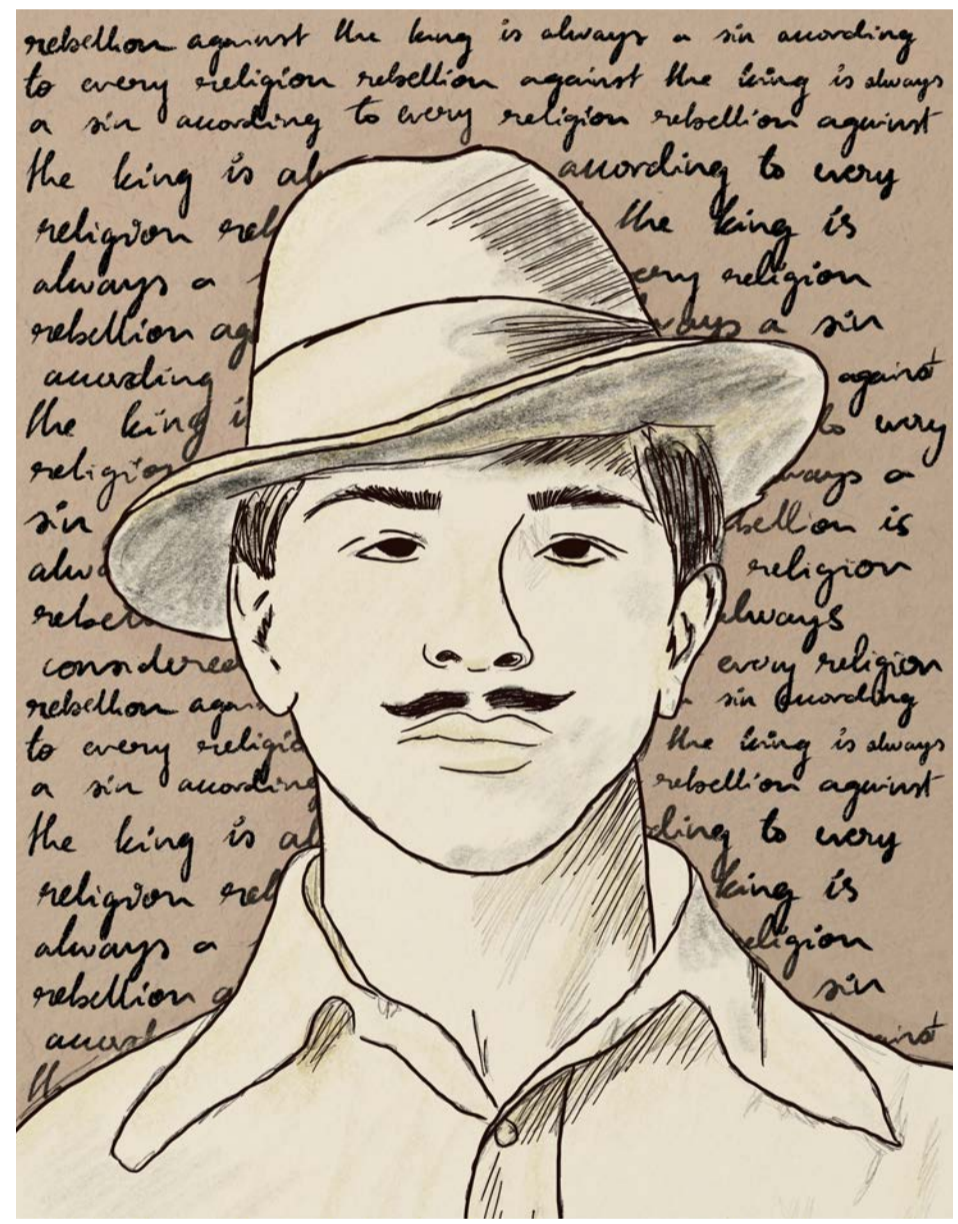 rebellion against the king is always a sin according
to every religion rebellion against the king is always
a sin according to every religion rebellion against
the king is al according to every
religion rebe the king is
always a every religion
rebellion ag ways a sin
according against
the king i to every
religion ways a
sin bellion is
alwa religion
rebell always
considered every religion
rebellion again sin according
to every religio the king is always
a sin according rebellion against
the king is al ding to every
religion rebe king is
always a eligion
rebellion a sin
accord ainst
th